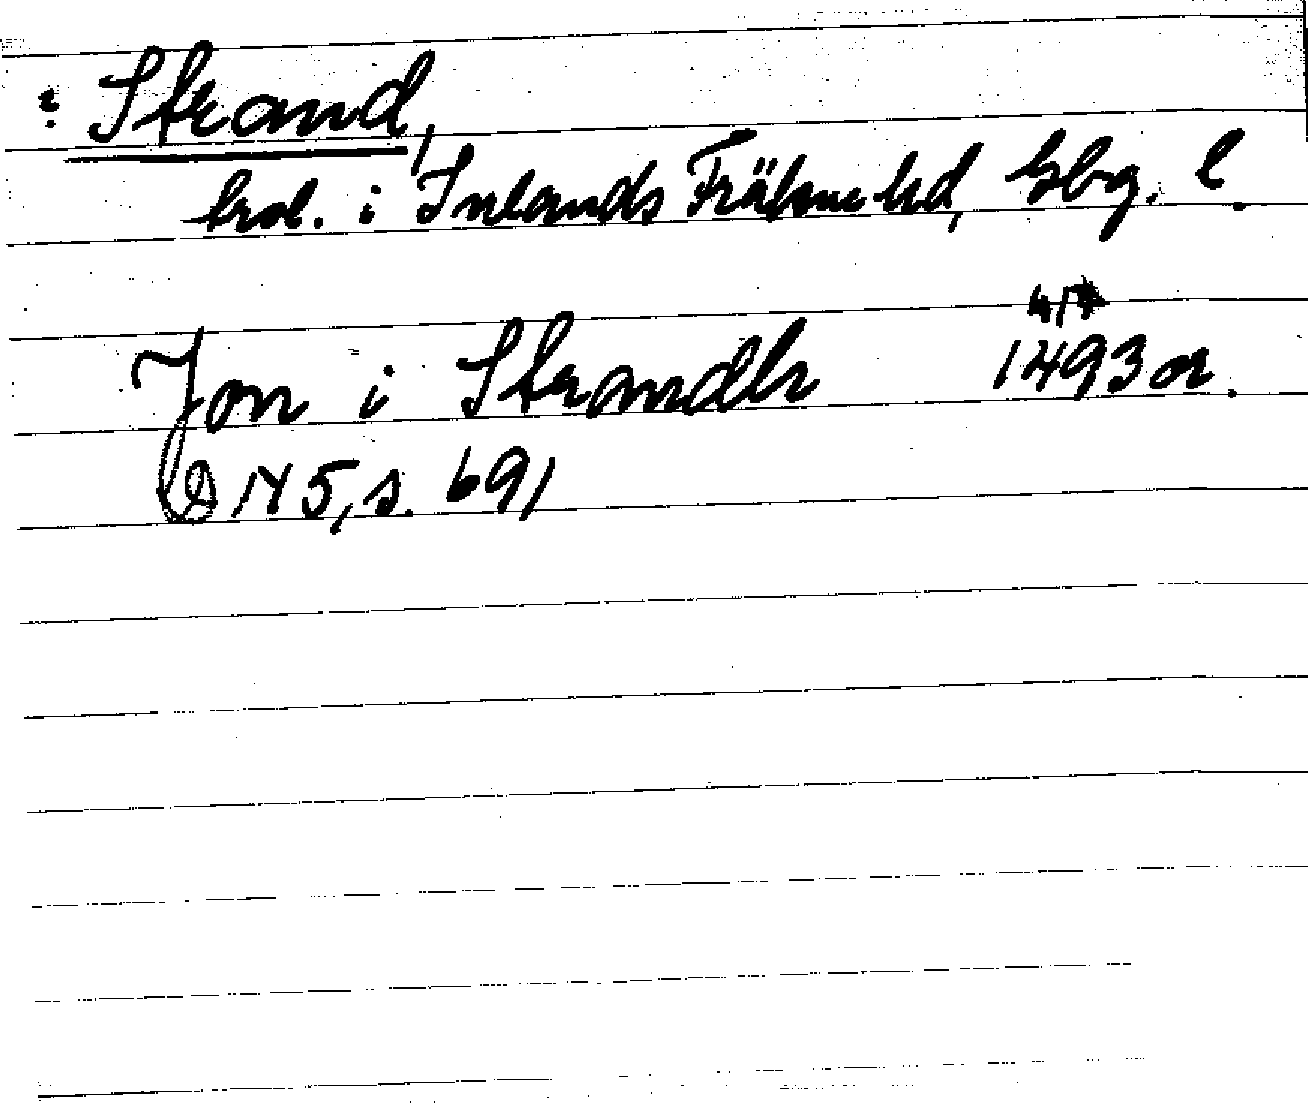 : Strand,
trol. i Inlands Fräkne hd, Gbg. l.
Jon i Strandh 1493 or.
DN 5, s. 691